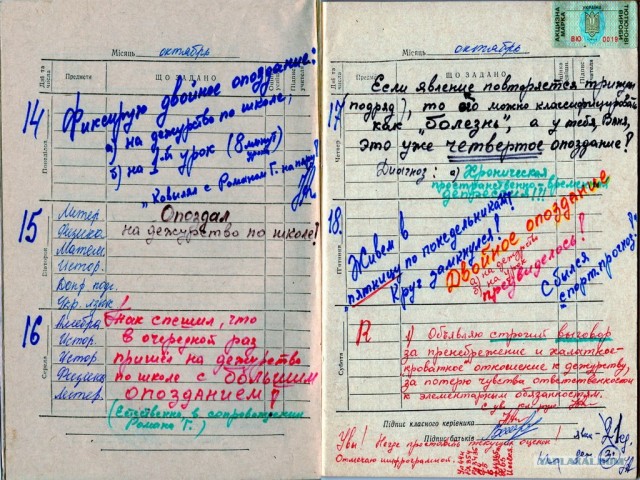 Місяць октябрь
Дні та числа
Предмети
ЩО ЗАДАНО
14
Понеділок
Фиксирую двойное опоздание:
а) на дежурство по школе,
б) на 1-й урок (8 минут
"Ковылял с Романом Г. на пару"
15
Вівторок
Литер.
Физика
Матем.
Истор.
Укр. язык
Опоздал
на дежурство по школе!
16
Середа
Алгебра
Истор.
Истор
Физика
Литер.
Так спешил, что
в очередной раз
пришёл на дежурство
по школе с большим
опозданием!
(Естественно, в сопровождении
Романа Г.)
АКЦИЗНА МАРКА
УКРАЇНА
ТЮТЮНОВІ ВИРОБИ
Місяць октябрь
Дні та числа
Предмети
ЩО ЗАДАНО
17
Четвер
Если явление повторяется трижды
подряд, то его можно классифицировать
как "болезнь", а у тебя, Ваня,
это уже четвертое опоздание!
Диагноз: а) Хроническая
пространственно-временная
депрессия!!!
18
П'ятниця
Живем в
"пятницу по понедельникам"!
Круг замкнулся!
Двойное опоздание
а) на дежурство
б) на урок
предвиделось!
Сбылся
"спорт. прогноз"!
Субота
Я
1) Объявляю строгий выговор
за пренебрежение и халатное
отношение к дежурству,
за потерю чувства ответственности
к элементарным обязанностям.
Підпис класного керівника
Підпис батьків
Увы! Негде проставить текущие оценки!
YAPLAKAL.COM